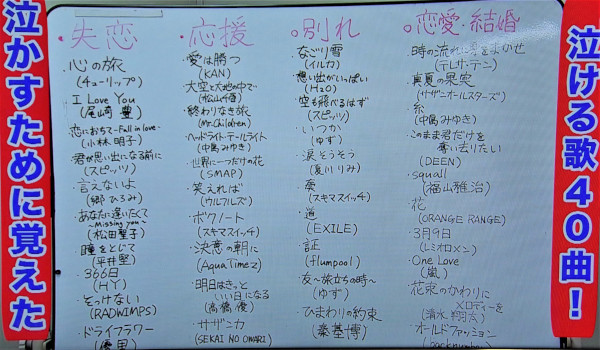 泣かすために覚えた
・失恋
・心の旅
(チューリップ)
・I Love You
(尾崎 豊)
・恋におちて -Fall in love-
(小林 明子)
・君が思い出になる前に
(スピッツ)
・言えないよ
(郷 ひろみ)
・あなたに逢いたくて
~Missing you~
(松田聖子)
・瞳をとじて
(平井堅)
・366日
(HY)
・そっけない
(RADWIMPS)
・ドライフラワー
(優里)
・応援
・愛は勝つ
(KAN)
・大空と大地の中で
(松山千春)
・終わりなき旅
(Mr.Children)
・ヘッドライト・テールライト
(中島みゆき)
・世界に一つだけの花
(SMAP)
・笑えれば
(ウルフルズ)
・ボクノート
(スキマスイッチ)
・決意の朝に
(Aqua Timez)
・明日はきっと
いい日になる
(高橋優)
・サザンカ
(SEKAI NO OWARI)
・別れ
・なごり雪
(イルカ)
・想い出がいっぱい
(H2O)
・空も飛べるはず
(スピッツ)
・いつか
(ゆず)
・涙そうそう
(夏川りみ)
・奏
(スキマスイッチ)
・道
(EXILE)
・証
(flumpool)
・友~旅立ちの時~
(ゆず)
・ひまわりの約束
(秦基博)
・恋愛・結婚
・時の流れに身をまかせ
(テレサ・テン)
・真夏の果実
(サザンオールスターズ)
・糸
(中島みゆき)
・このまま君だけを
奪い去りたい
(DEEN)
・squall
(福山雅治)
・花
(ORANGE RANGE)
・3月9日
(レミオロメン)
・One Love
(嵐)
・花束のかわりに
メロディーを
(清水翔太)
・オールドファッション
(back number)
泣ける歌40曲!